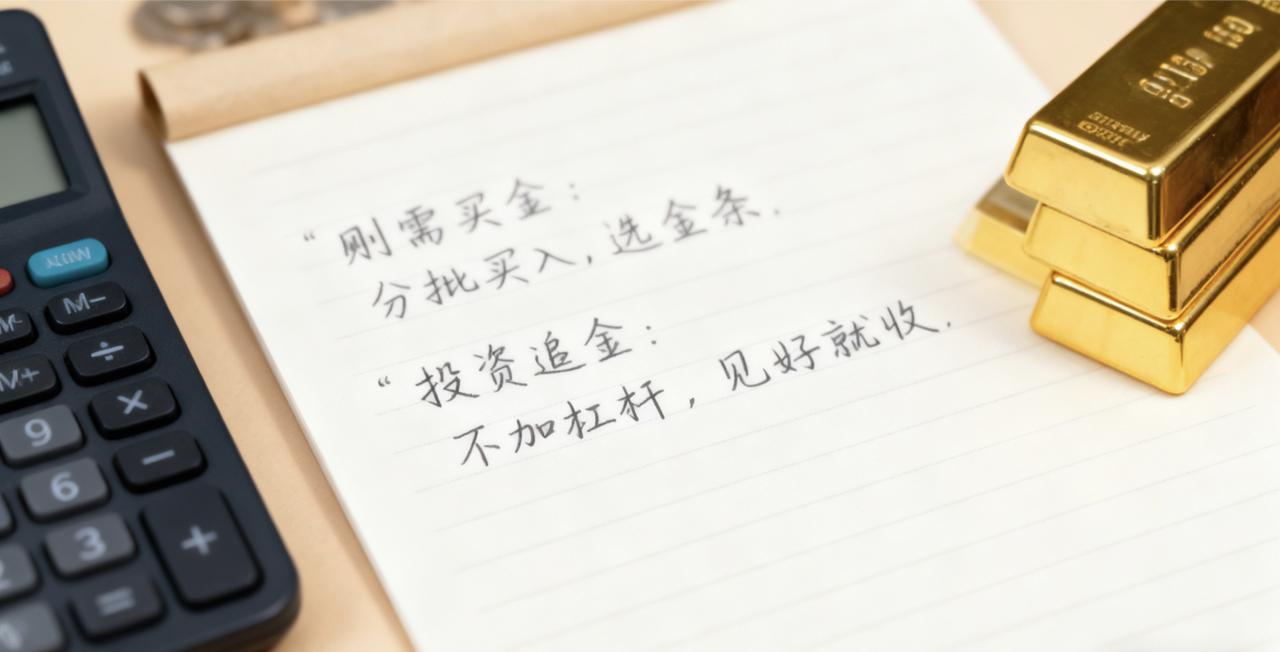 “刚需买金：
分批买入，选金条.
“投资追金：
不加杠杆，见好就收.
M−
÷
M+
×
9
−
6
+
3
=